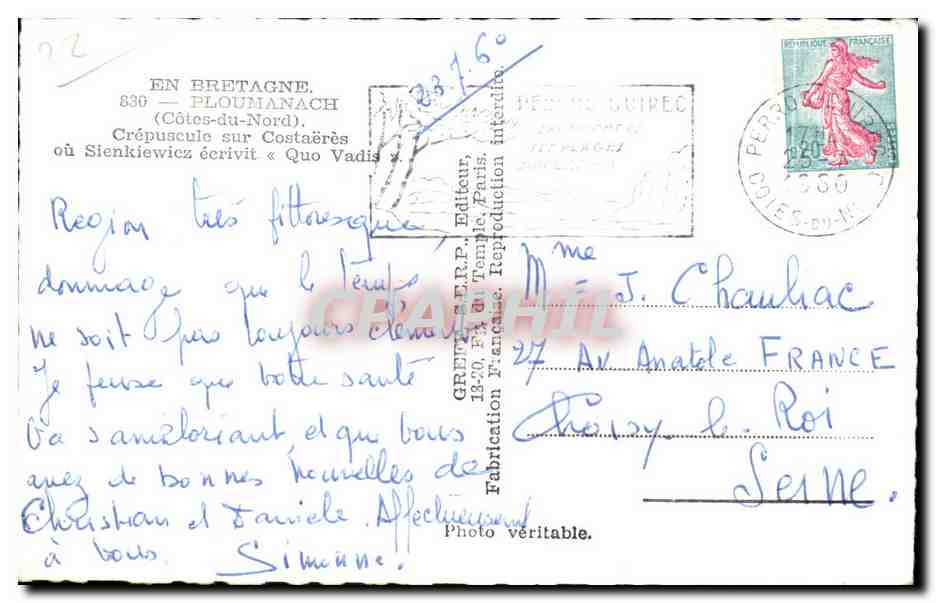 22
23.7.60
EN BRETAGNE.
830 — PLOUMANACH
(Côtes-du-Nord).
Crépuscule sur Costaërès
où Sienkiewicz écrivit « Quo Vadis ».
Region très pittoresque,
dommage que le temps
ne soit pas toujours clément
Je pense que votre santé
va s'améliorant, et que vous
avez de bonnes nouvelles de
Christian et Daniele. Affectueusement
à vous. Simonne.
GREFF, S.E.R.P., Editeur,
18-20, du Temple, Paris.
Fabrication Française. Reproduction interdite.
Photo véritable.
PERROS GUIREC
REPUBLIQUE FRANÇAISE
1960
COTES-DU-N
Mme J. Chauliac
27 Av. Anatole FRANCE
Choisy le Roi
Seine.
CPAPHIL